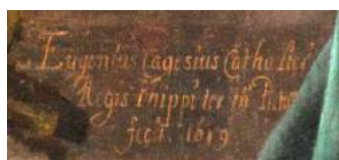 Eugenius Cagesius Catholici
Regis Philippi ter tii Pictor
fict. 1619